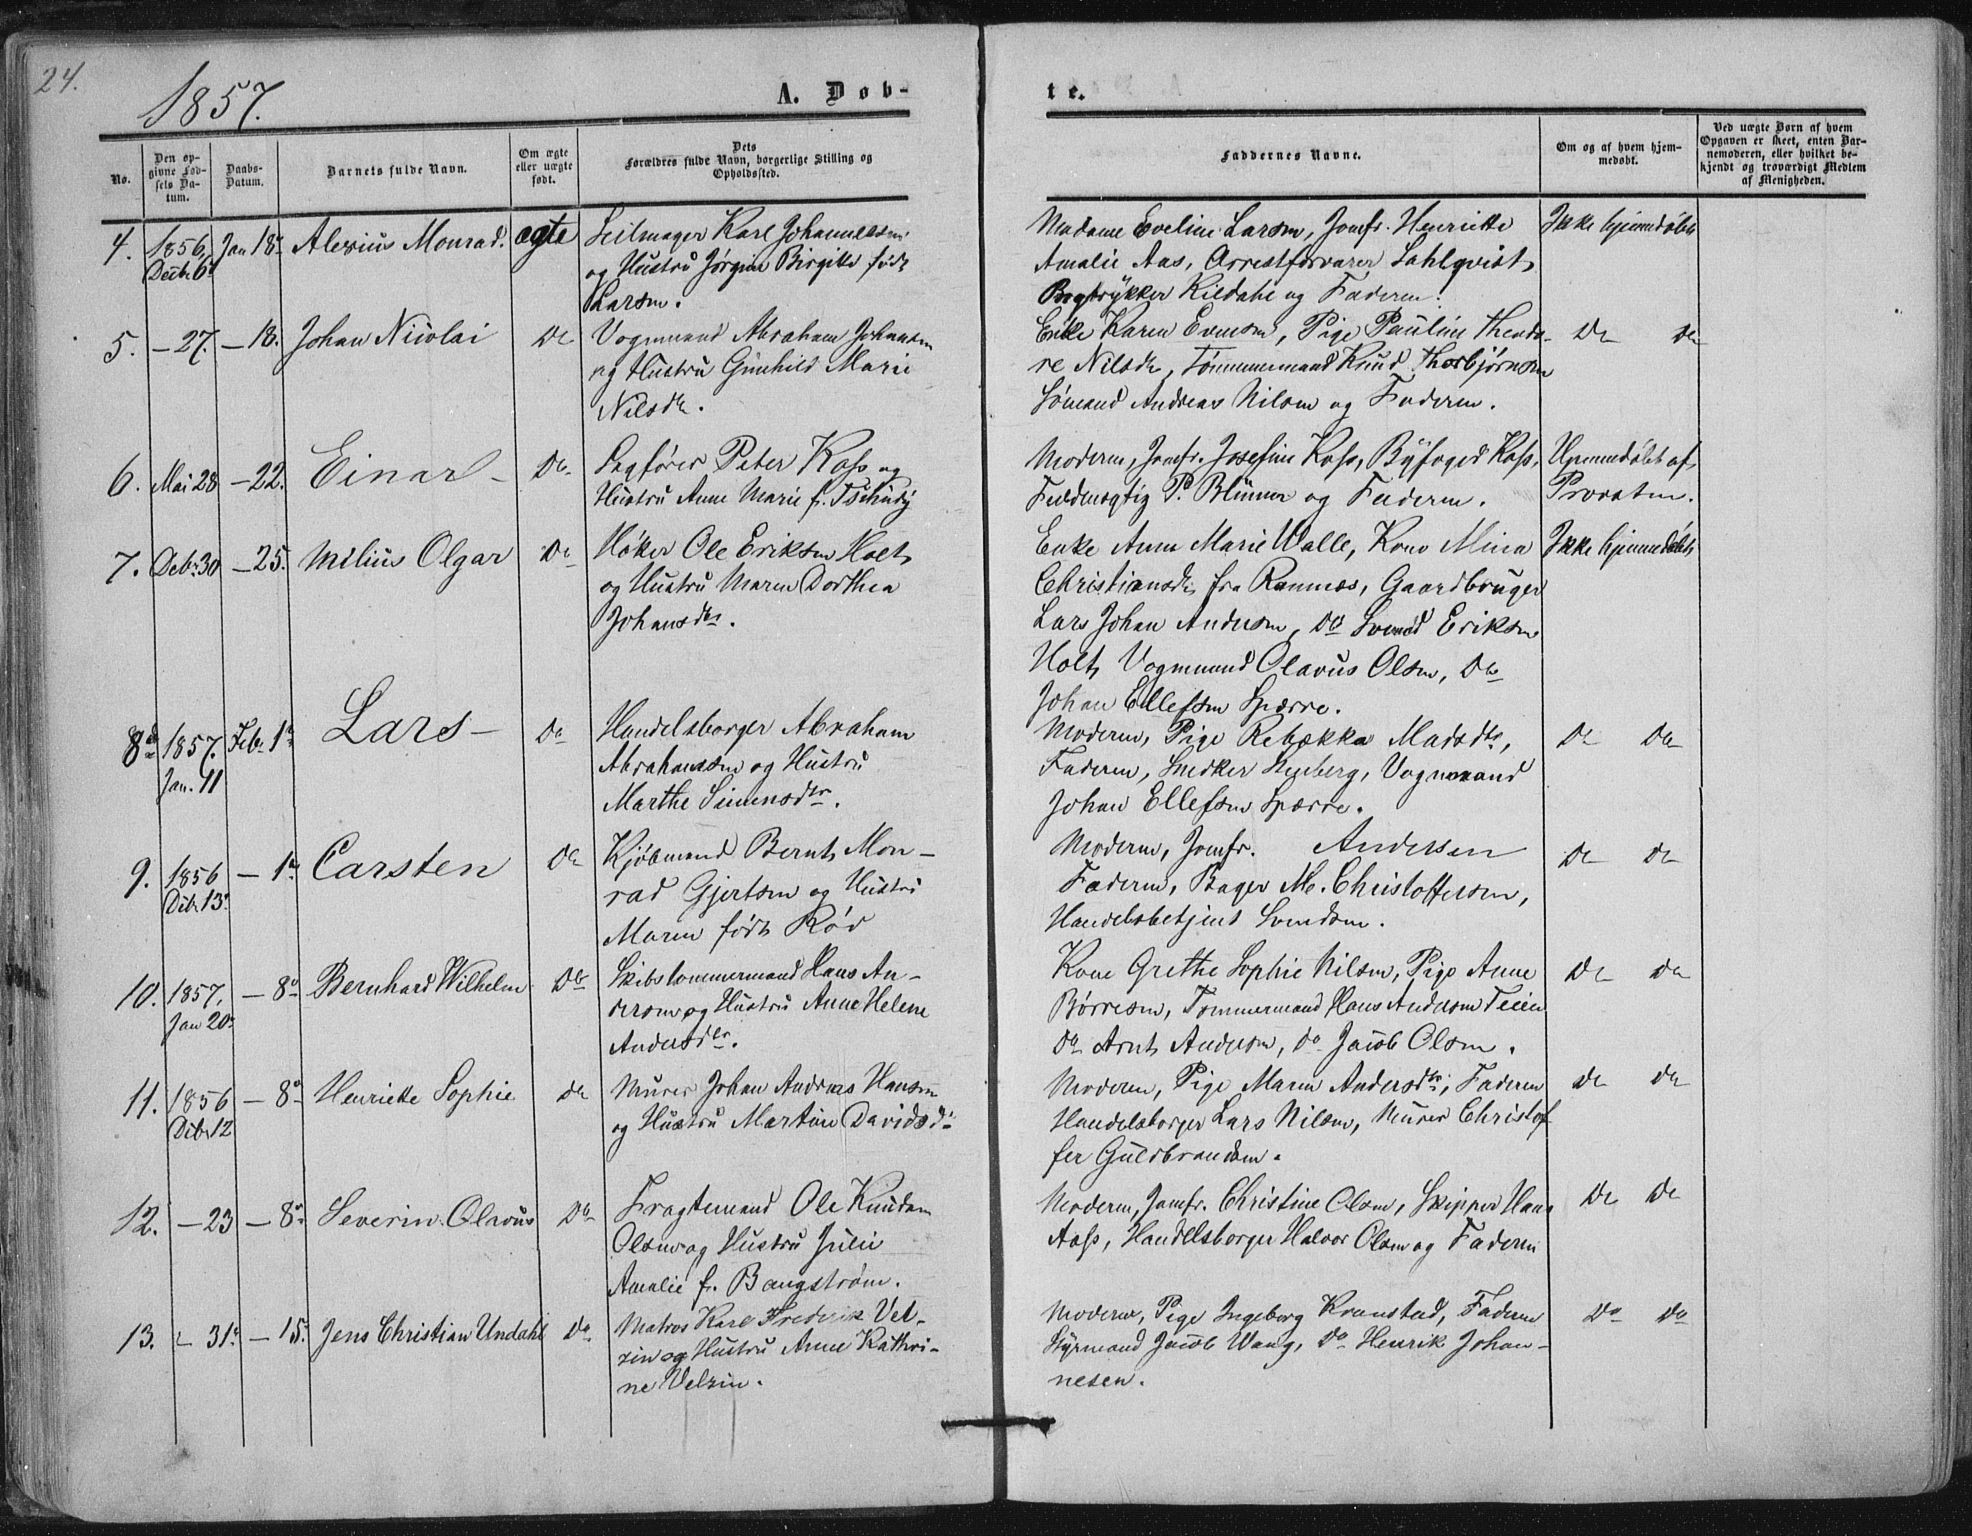 24.
1857.
A. Døb-
te.
No.
Den op-
givne Fød-
sels Da-
tum.
Daabs-
Datum.
Barnets fulde Navn.
Om ægte
eller uægte
født.
Dets
Forældres fulde Navn, borgerlige Stilling og
Opholdssted.
Faddernes Navne.
Om og af hvem hjem-
medøbt.
Ved uægte Børn af hvem
Opgaven er skeet, enten Bar-
nemoderen, eller hvilket be-
kjendt og troværdigt Medlem
af Menigheden.
4. 1856, Decb. 6 Jan 18 Alexius Monrad. ægte
Seilmager Karl Johannessen
og Hustru Jørgine Birgitte født
Larsen.
Madame Eveline Larsen, Jomfr. Henriette
Amalie Aas, Arrestforvarer Sahlqvist,
Bogtrykker Kildahl og Faderen.
Ikke hjemmedøbt
5. -27. -18. Johan Nicolai Do
Vogmand Abraham Johansen
og Hustru Gunhild Marie
Nilsdr.
Enke Karen Evensen, Pige Pauline Theodo-
re Nilsdr, Tømmermand Knud Thorbjørnsen
Sømand Andreas Nilsen og Faderen.
Do Do
6. Mai 28 -22. Einar - Do
Sagfører Peter Koss og
Hustru Anne Marie f. Tschudy
Moderen, Jomfr. Josefine Koss, Byfoged Koss,
Fuldmægtig P. Blümer og Faderen.
Hjemmedøbt af
Provsten.
7. Debr. 30 -25. Milius Olgar Do
Høker Ole Eriksen Holt
og Hustru Maren Dorthea
Johansdtr.
Enke Anne Marie Walle, Kone Mina
Christiansdr fra Ramnæs, Gaardbruger
Lars Johan Andersen, Do Svend Eriksen
Holt, Vogmand Olavus Olsen, Do
Johan Ellefsen Spærre.
Ikke hjemmedøbt
8. 1857. Jan. 11 Feb. 1 Lars - Do
Handelsborger Abraham
Abrahamsen og Hustru
Marthe Simensdtr.
Moderen, Pige Rebækka Madsdtr,
Faderen, Snedker Nyberg, Vogmand
Johan Ellefsen Spærre.
Do Do
9. 1856 Debr. 13 - 1 Carsten Do
Kjøbmand Bernt Mon-
rad Gjertsen og Hustru
Maren født Röd
Moderen, Jomfr. Andersen
Faderen, Bager M. Christoffersen,
Handelsbetjent Svendsen.
Do Do
10. 1857. Jan 20 - 8 Bernhard Wilhelm Do
Skibstømmermand Hans An-
dersen og Hustru Anne Helene
Andersdtr.
Kone Grethe Sophie Nilsen, Pige Anne
Børresen, Tømmermand Hans Andersen Teien
Do Arnt Andersen, Do Jacob Olsen.
Do Do
11. 1856 Debr. 12 - 8 Henriette Sophie Do
Murer Johan Andreas Hansen
og Hustru Martine Davidsd.
Moderen, Pige Maren Andersdtr, Faderen
Handelsborger Lars Nilsen, Murer Christof-
fer Guldbrandsen.
Do Do
12. - 23 - 8 Severin Olavus Do
Fragtemand Ole Knudsen
Olsen og Hustru Julie
Amalie f. Bangstrøm.
Moderen, Jomfr. Christine Olsen, Skipper Hans
Aass, Handelsborger Halvor Olsen og Faderen
Do Do
13. - 31 - 15. Jens Christian Undahl Do
Matros Karl Fredrik Vel-
zin og Hustru Anne Kathri-
ne Velzin.
Moderen, Pige Ingeborg Kranstad, Faderen
Styrmand Jacob Wang, Do Henrik Johan-
nesen.
Do Do